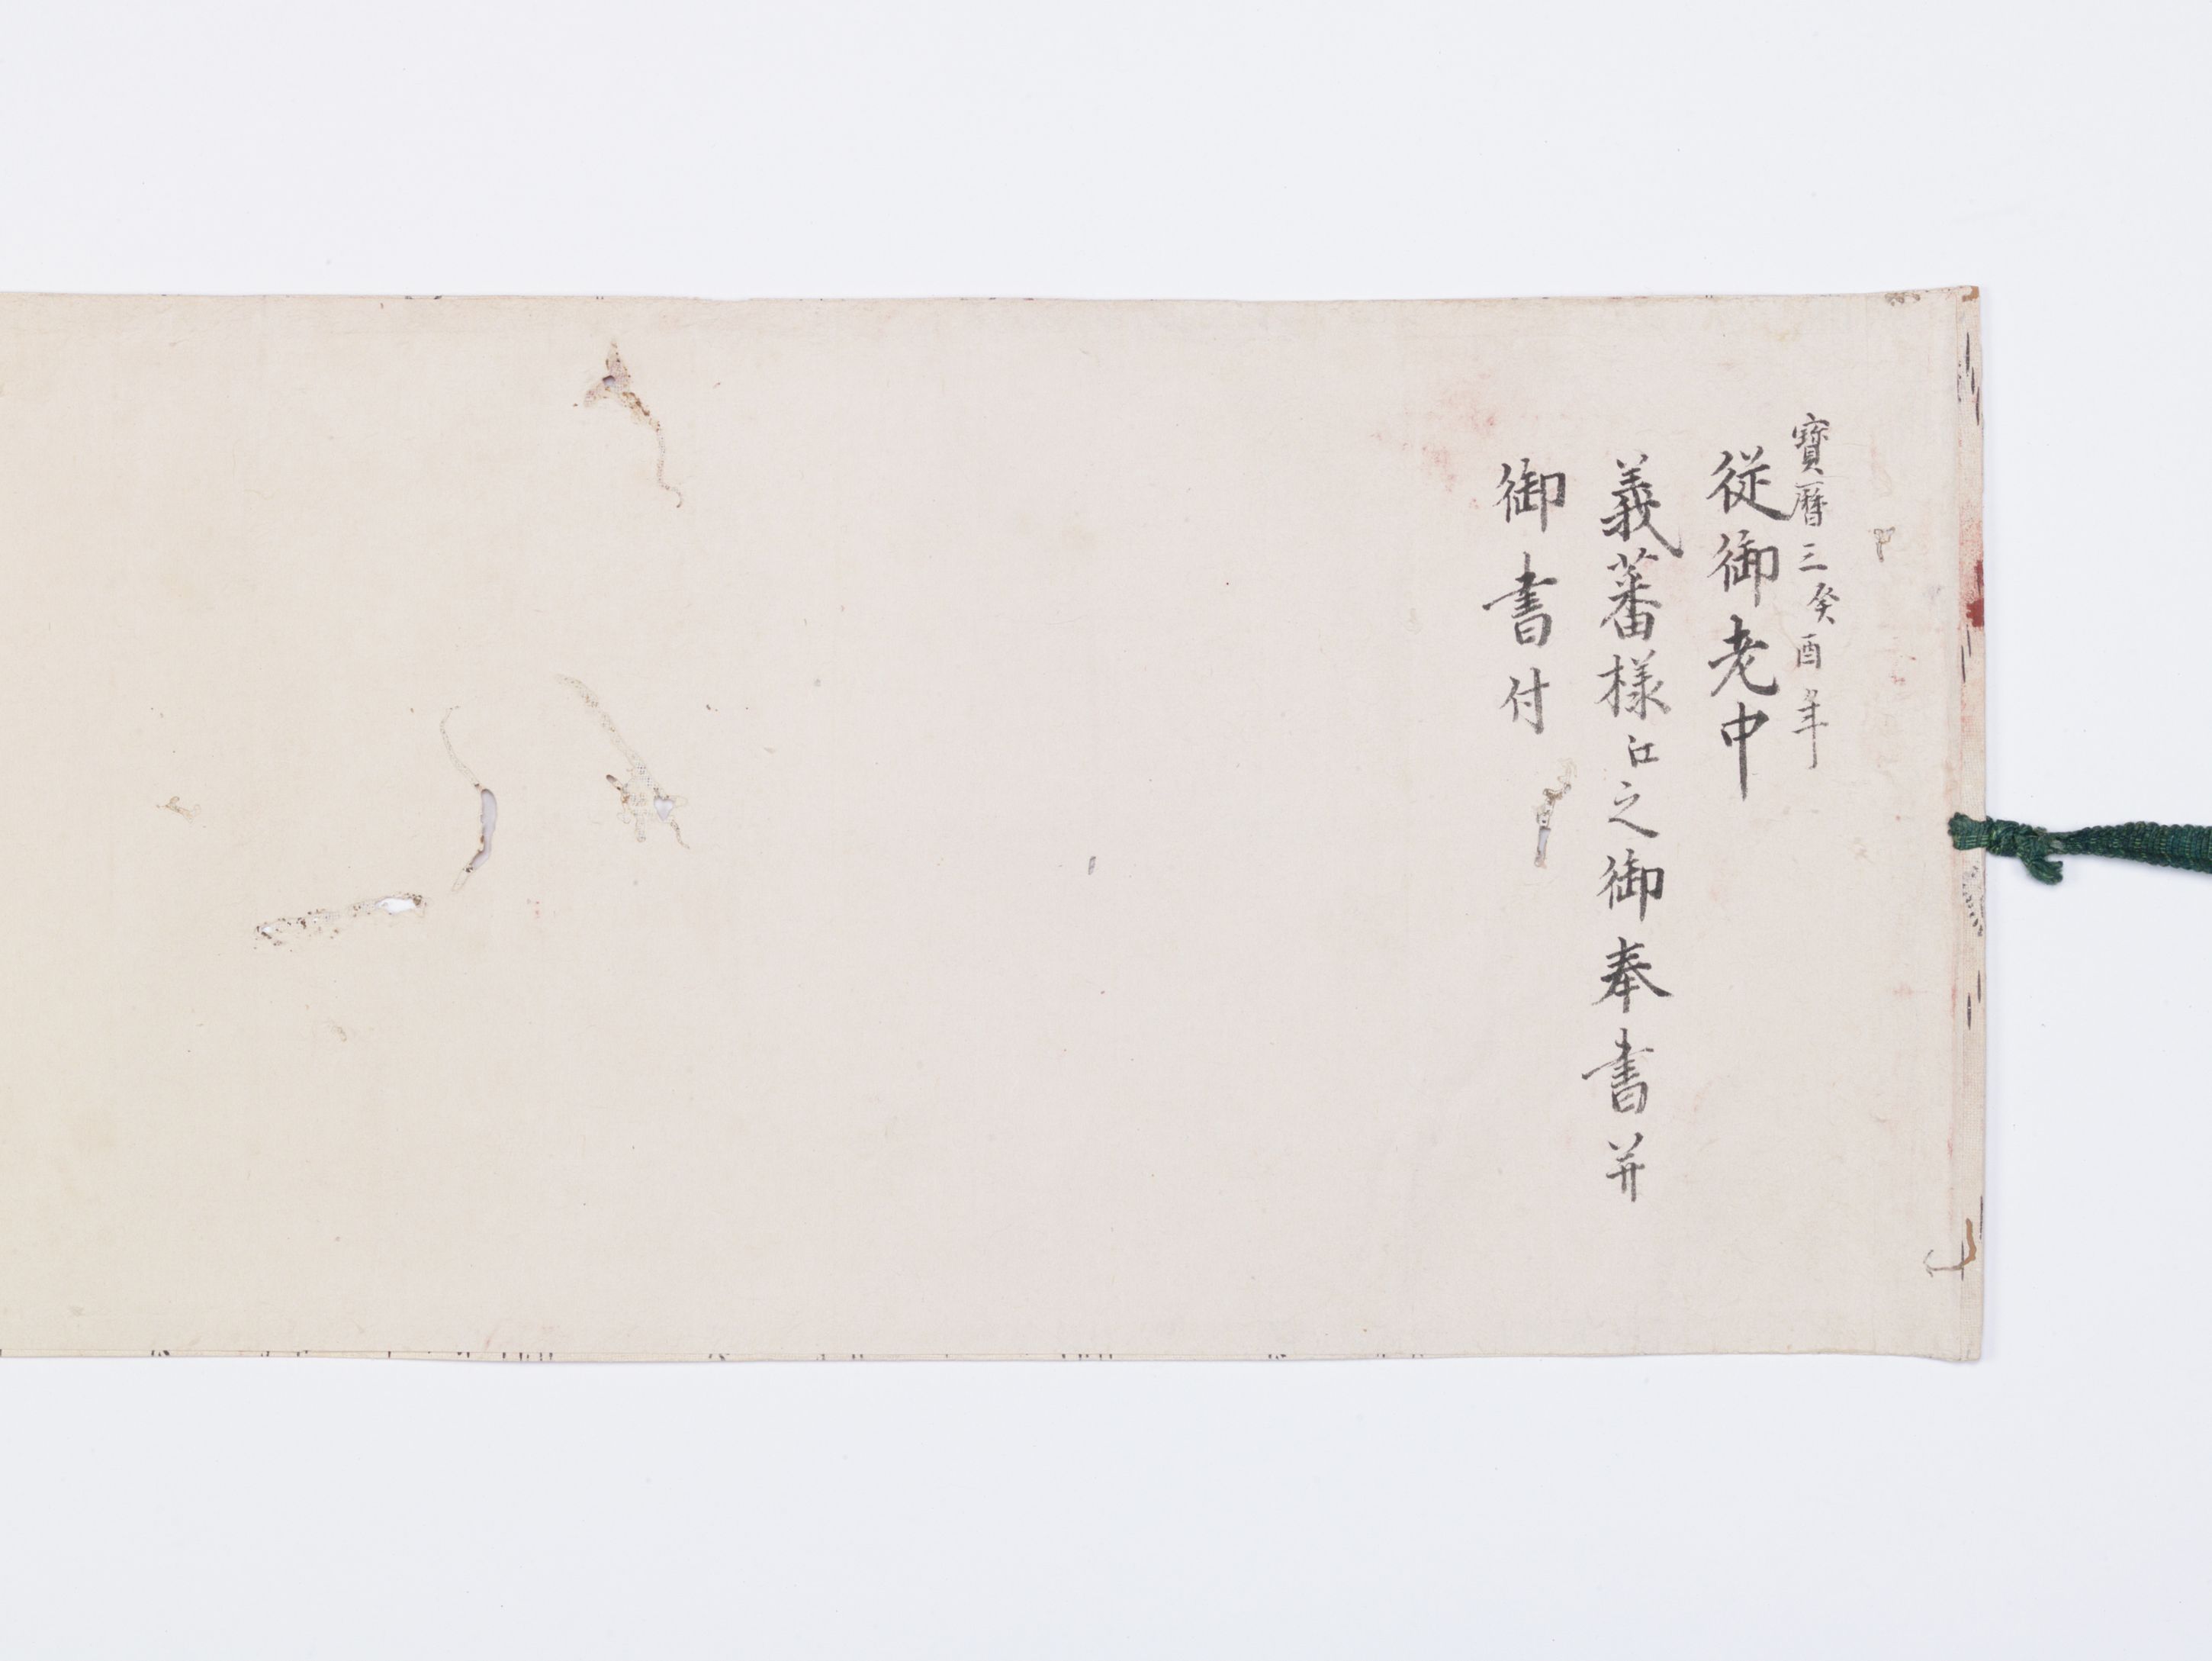 寶暦三癸酉年
従御老中
義蕃様江之御奉書并
御書付